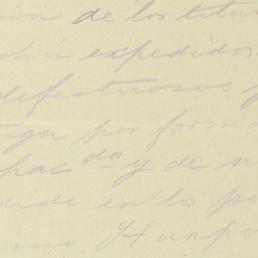 de los titu
expedidos
defectuosos y
por forma
hac do y de
dido en lo po
Huapo